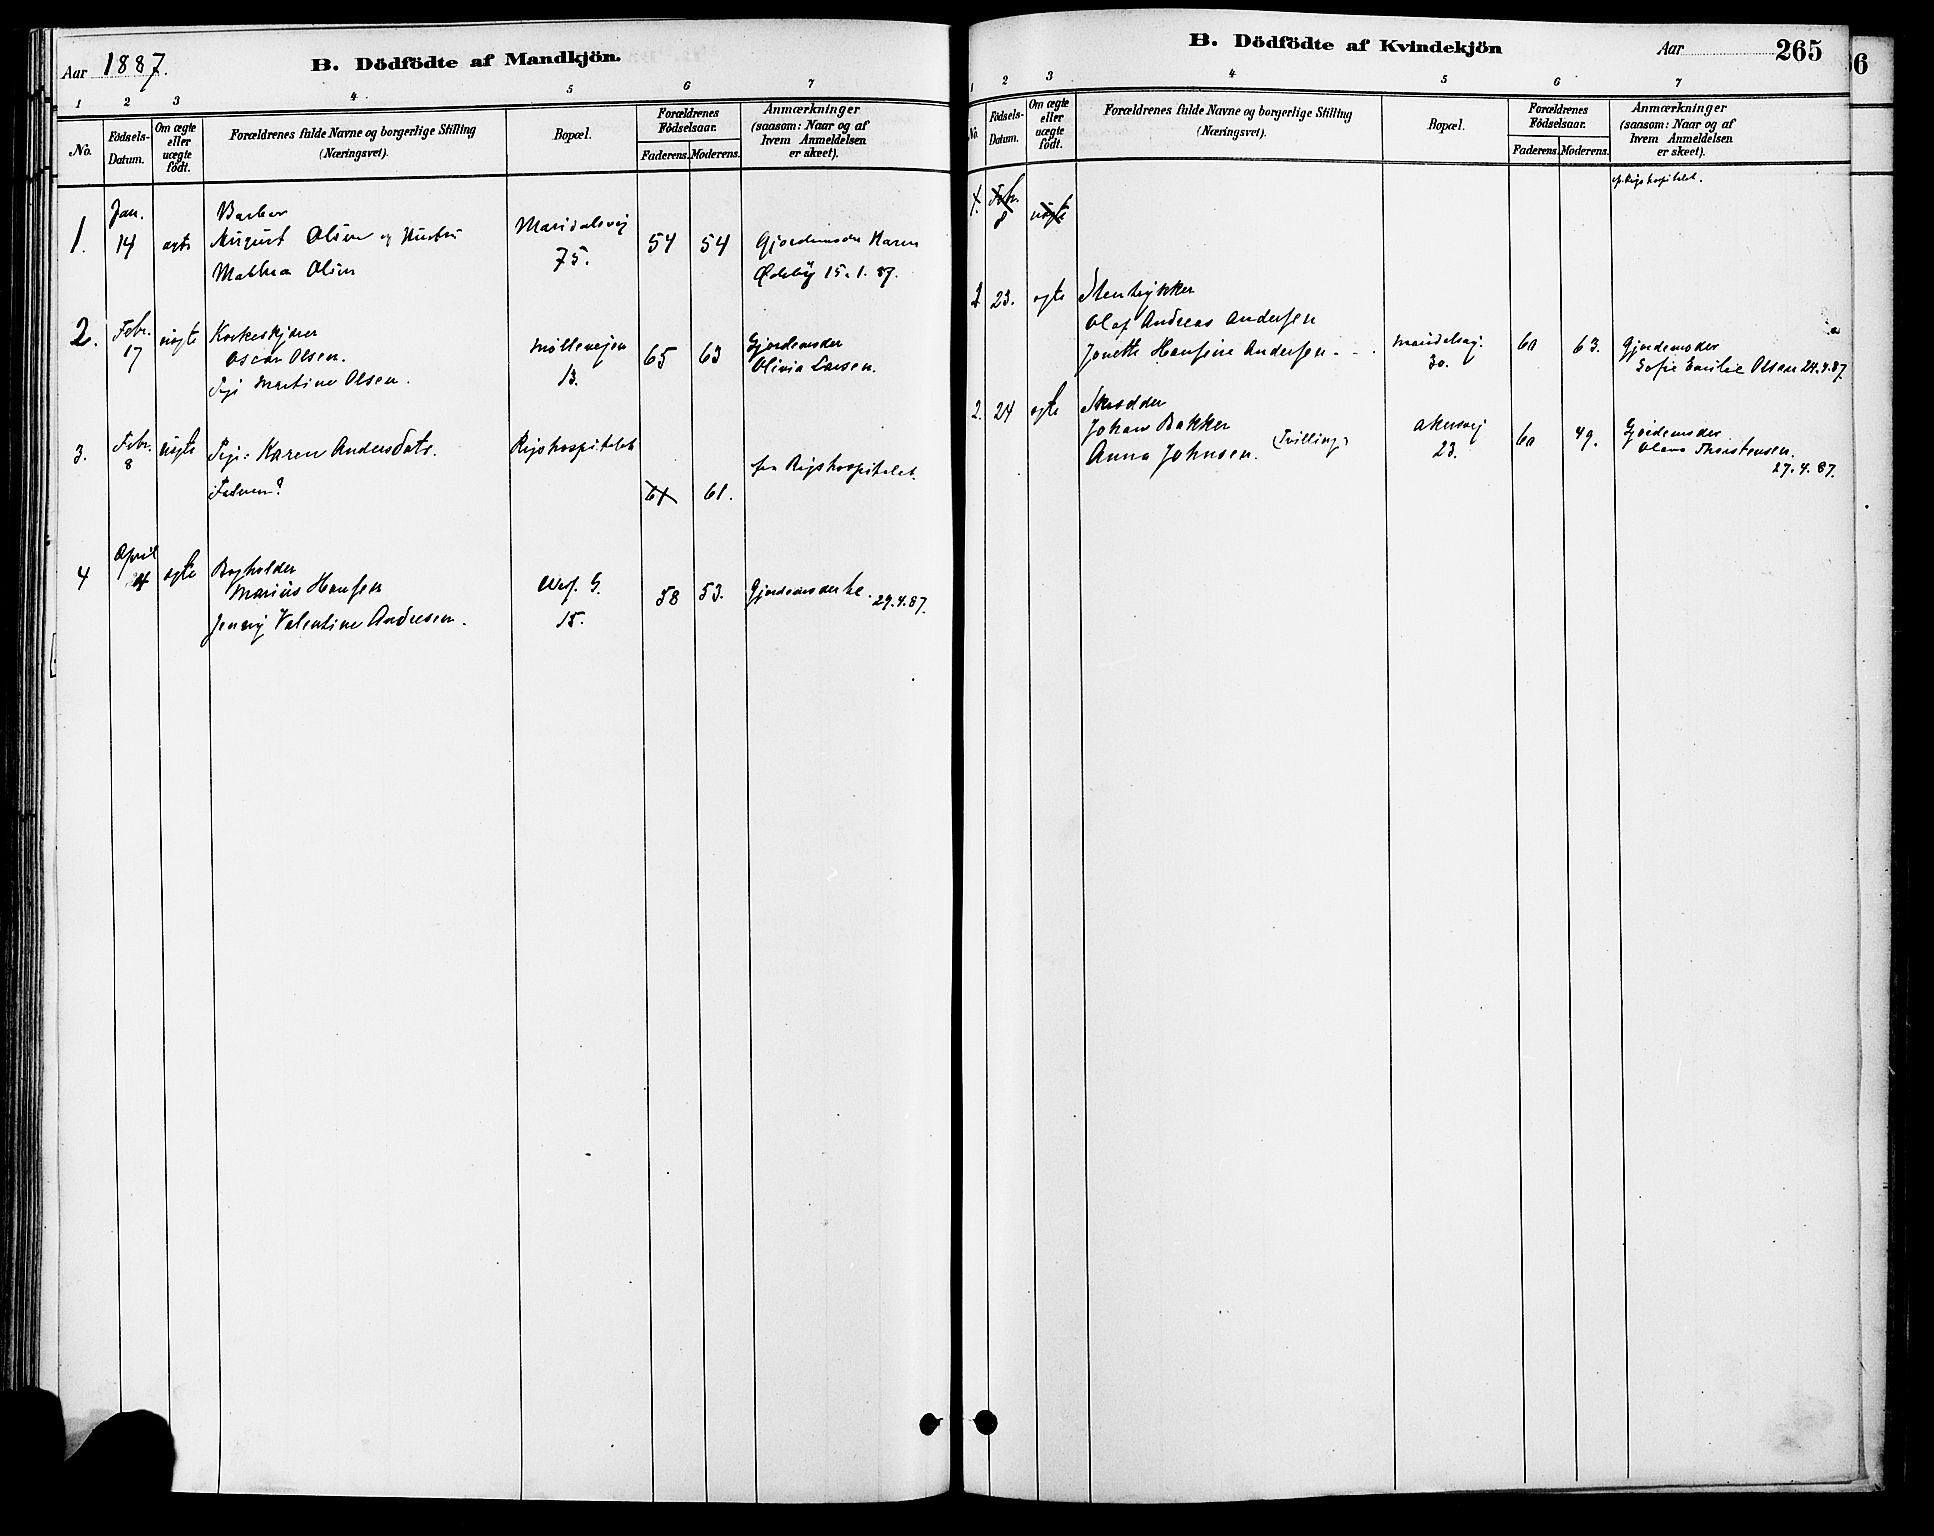 Aar 1887.
B. Dödfödte af Mandkjön.
1 2 3 4 5 6 7
No.
Födsels-Datum.
Om ægte eller uægte födt.
Forældrenes fulde Navne og borgerlige Stilling
(Næringsvei).
Bopæl.
Forældrenes Födselsaar.
Faderens. Moderens.
Anmærkninger
(saasom: Naar og af
hvem Anmeldelsen
er skeet).
Jan. Barber
1. 14 ægte August Olsen og Hustru Maridalsvej 54 54 Gjordemoder Karen
Mathea Olsen 75. Ødeby 15.1.87.
2. Febr. uægte Korkeskjærer Møllevejen 65 63 Gjordemoder
17 Oscar Olsen. 13. Olivia Larsen.
Pige Martine Olsen.
3. Febr. uægte Pige: Karen Andersdatr. Rigshospitalet
8 fra Rigshospitalet.
Faderen? 61 61.
April
4 24 ægte Bogholder
Marius Hansen 58 53. Gjordemoder 29.4.87.
Jenny Valentine Andresen. 15.
B. Dödfödte af Kvindekjön
Aar 265
1 2 3 4 5 6 7
No.
Födsels-Datum.
Om ægte eller uægte födt.
Forældrenes fulde Navne og borgerlige Stilling
(Næringsvei).
Bopæl.
Forældrenes Födselsaar.
Faderens. Moderens.
Anmærkninger
(saasom: Naar og af
hvem Anmeldelsen
er skeet).
Rigshospitalet.
1. Febr. uægte
8
1 23. ægte Stentrykker
Olaf Andreas Andersen
Jonette Hansine Andersen Maridalsvej. 60 63. Gjordemoder
30. Sofie Emilie Olsen 24.4.87
2. 24 ægte Skrædder
Johan Bakker Akersvej 60 49. Gjordemoder
Anna Johnsen. (Tvilling) 23. Olava Thorstensen.
27.4.87.
66